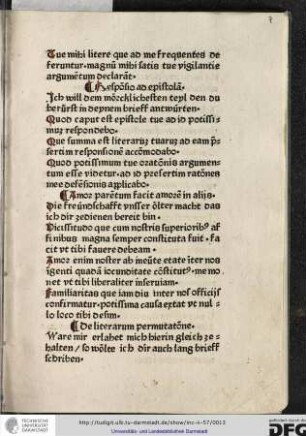 Tue mihi litere que ad me frequentes de
feruntur. magnū mihi satis tue vigilantie
argumētum declarāt.
Respōsio ad epistolā.
Ich will dem mörcklichesten teyl den du
berürst in deynem brieff antwürten.
Quod caput est epistole tue ad id potissi-
mus respondebo.
Que summa est literarū tuarū ad eam p̄
sertim responsionē accōmodabo.
Quod potissimum tue oratōnis argumen-
tum esse videtur. ad id presertim ratōnem
mee defēsionis applicabo.
Amor parētum facit amorē in alijs.
Die freündschafft vnsser ölter macht das
ich dir zedienen bereit bin.
Uicissitudo que cum nostris superiorib⁹ af
finibus magna semper constituta fuit. fa-
cit vt tibi fauere debeam.
Amor enim noster ab ineūte etate iter nos
igenti quadā iocunditate cōstitut⁹. me mo
net vt tibi liberaliter inseruiam.
Familiaritas que iam diu inter nos officijs
confirmatur. potissima causa extat vt nul-
lo loco tibi desim.
De literarum permutatōne.
Ware mir erlabet mich hierin gleich ze-
halten / so wölte ich dir auch lang brieff
schriben.
TECHNISCHE
UNIVERSITÄT
DARMSTADT
http://tudigit.ulb.tu-darmstadt.de/show/inc-ii-57/0013
Universitäts- und Landesbibliothek Darmstadt
DFG